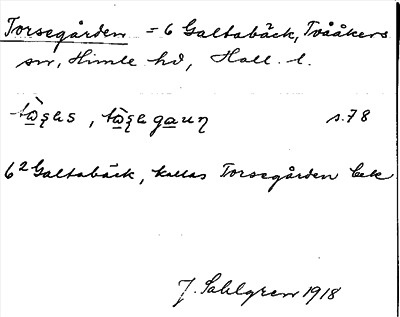 Torsegården = 6 Galtabäck, Tvååkers
sn, Himle hd, Hall. l.
s. 78
6² Galtabäck, kallas Torsegården bek
J. Sahlgren 1918